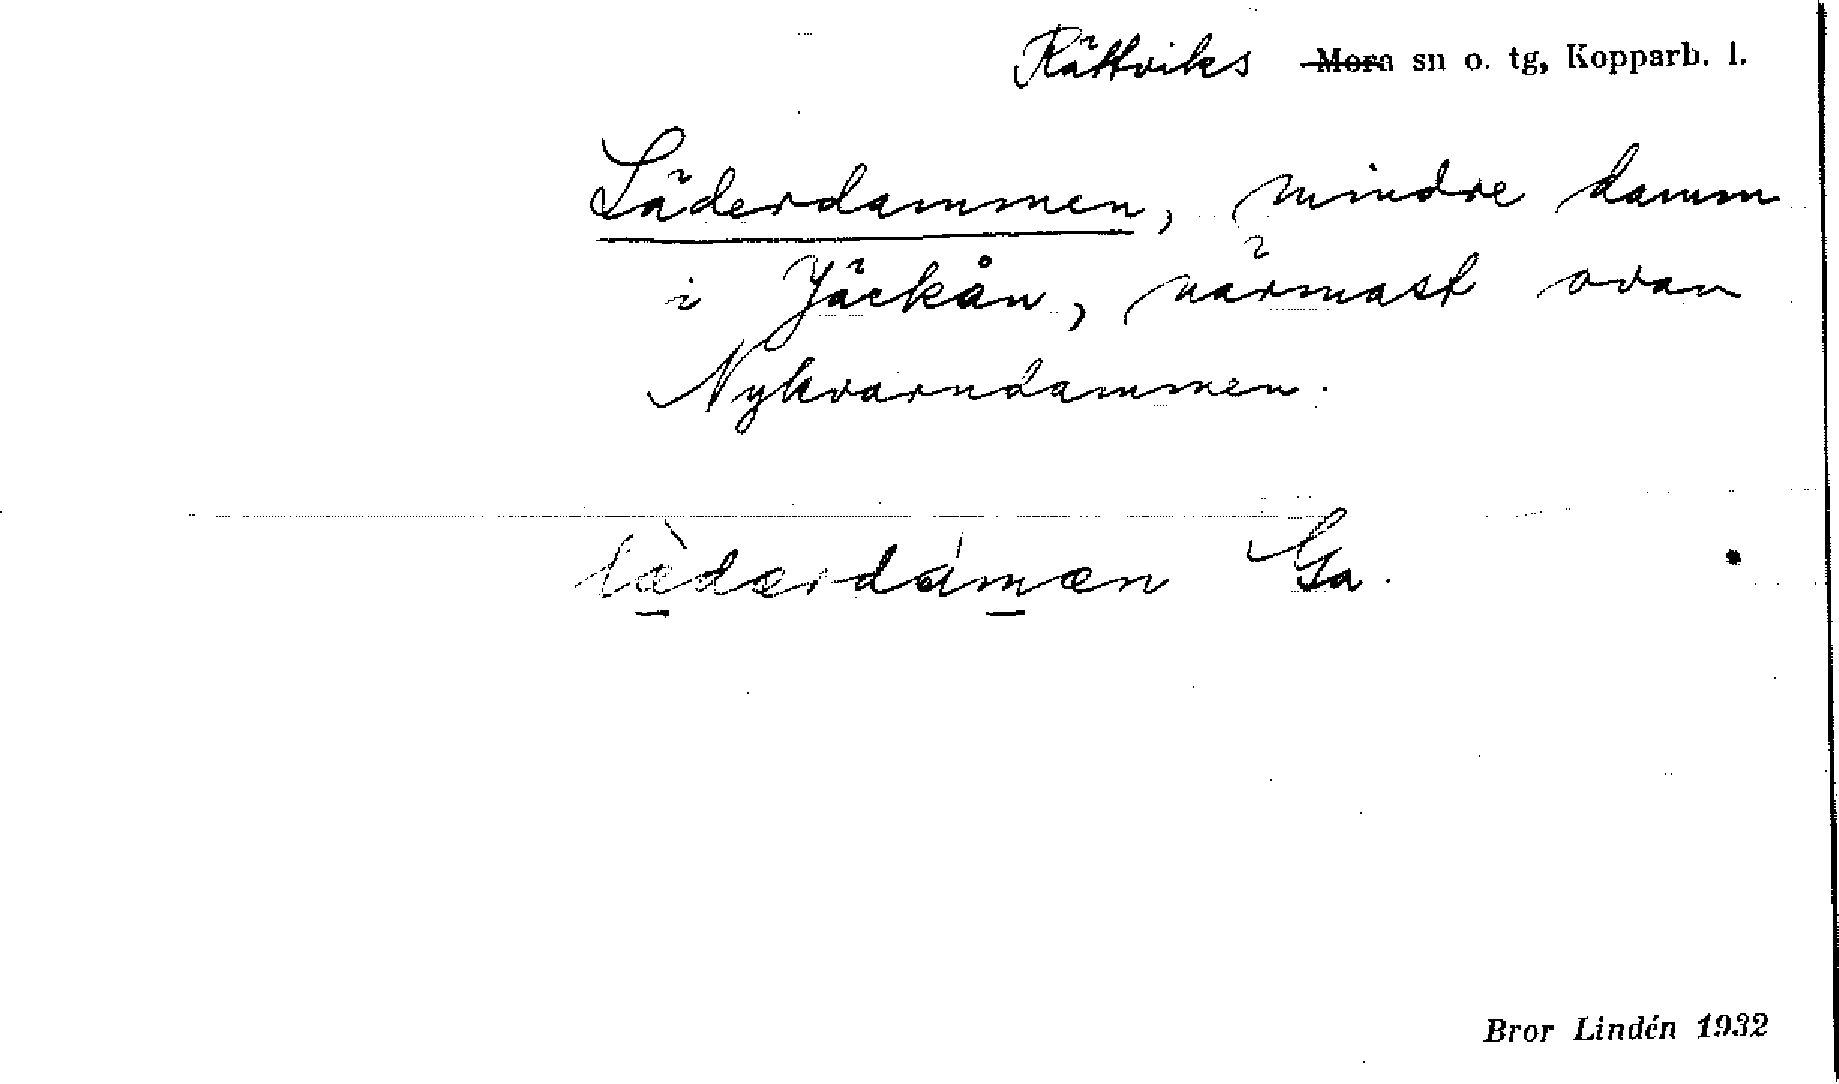 Rättviks ~~Mora~~ sn o. tg, Kopparb. l.
Läderdammen, mindre damm
i Jäckån, närmast ovan
Nykvarndammen.
lædærdámæn Ga.
Bror Lindén 1932